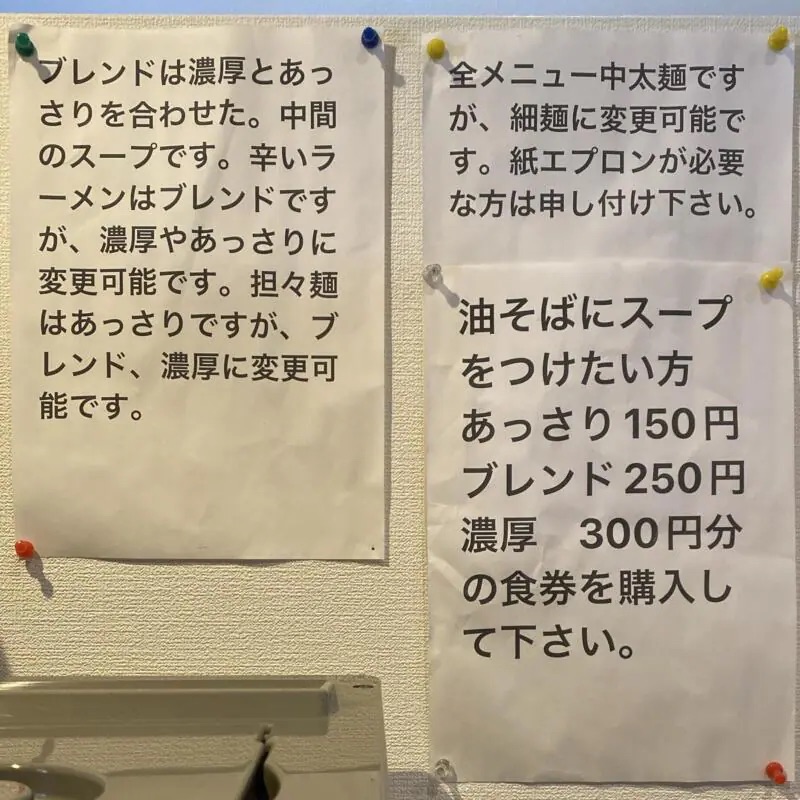 ブレンドは濃厚とあっ
さりを合わせた。中間
のスープです。辛いラ
ーメンはブレンドです
が、濃厚やあっさりに
変更可能です。担々麺
はあっさりですが、ブ
レンド、濃厚に変更可
能です。
全メニュー中太麺です
が、細麺に変更可能で
す。紙エプロンが必要
な方は申し付け下さい。
油そばにスープ
をつけたい方
あっさり150円
ブレンド250円
濃厚　300円分
の食券を購入し
て下さい。